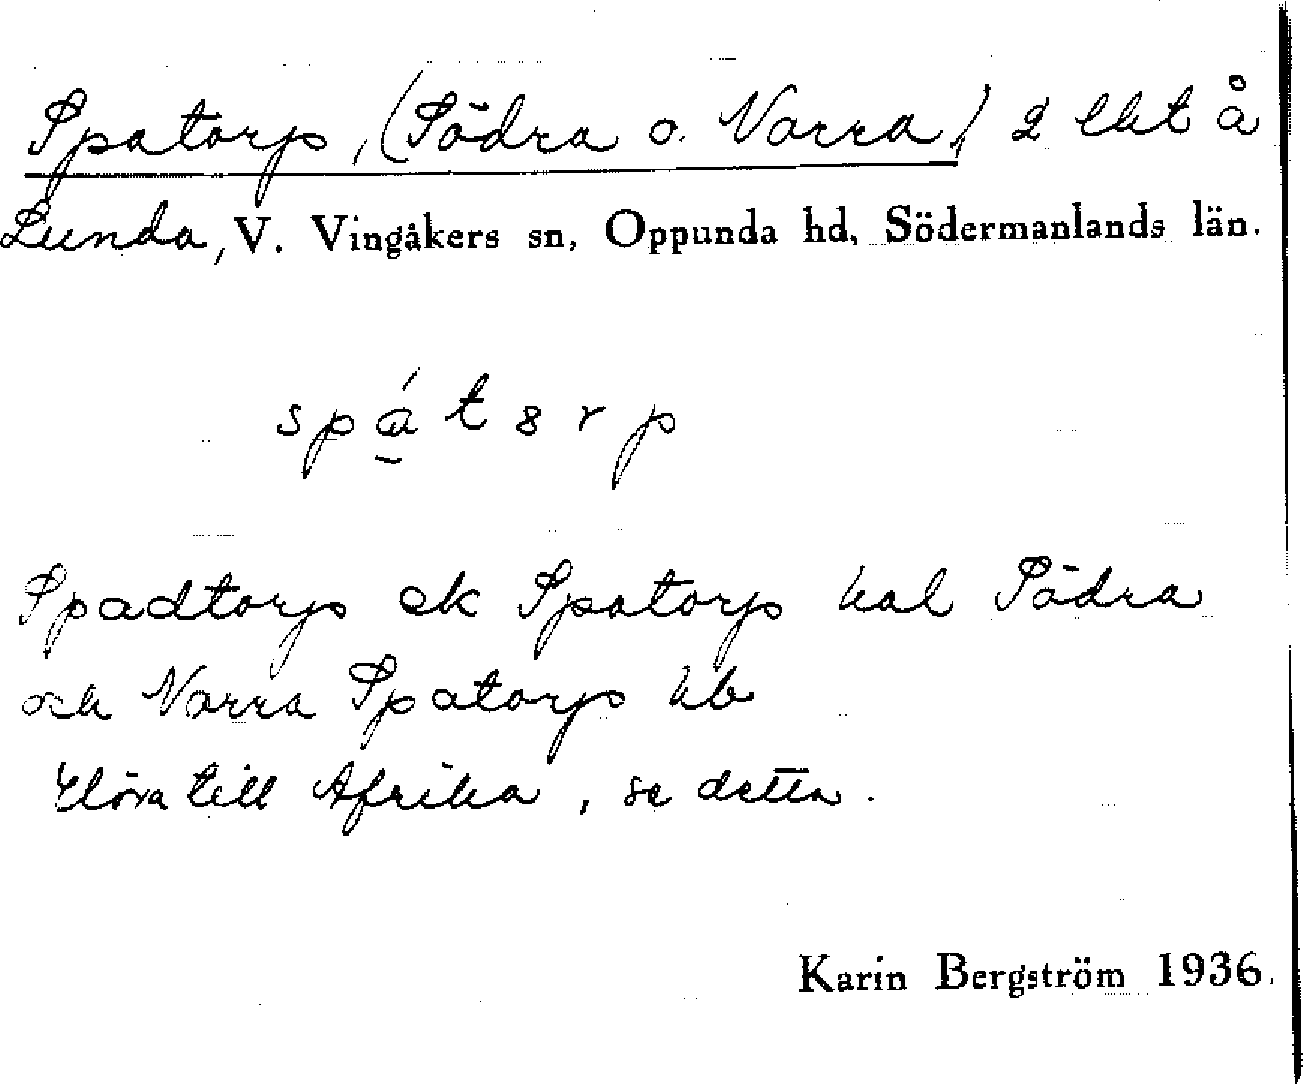 Spatorp, (Södra o. Norra) 2 lht å
Lunda, V. Vingåkers sn, Oppunda hd, Södermanlands län.
spá̱tɜrp
Spadtorp ek Spatorp hal Södra
och Norra Spatorp hb
Höra till Afrika, se detta.
Karin Bergström 1936.